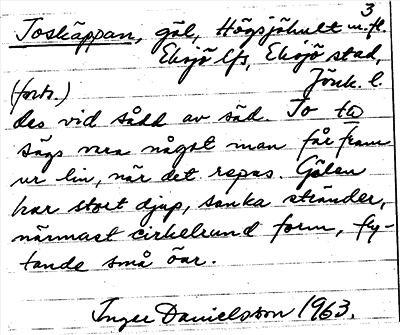 3
Toskäppan, göl, Högsjöhult m.fl.
Eksjö lfs, Eksjö stad,
Jönk. l.
(forts.)
des vid sådd av säd. To ta
sägs vara något man får fram
ur lin, när det repas. Gölen
har stort djup, sanka stränder,
närmast cirkelrund form, fly-
tande små öar.
Inger Danielsson 1963.